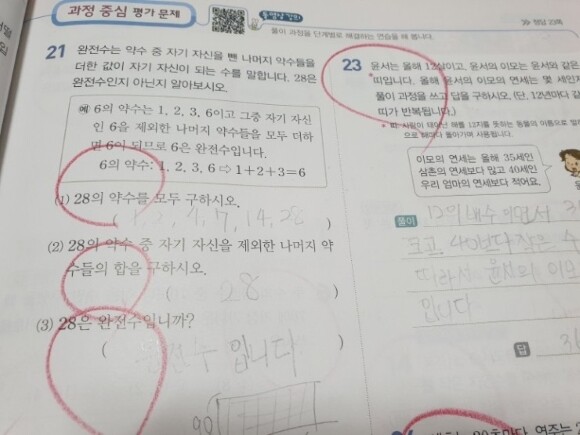 과정 중심 평가 문제
동영상 강의
풀이 과정을 단계별로 해결하는 연습을 해 봅니다.
정답 23쪽
21 완전수는 약수 중 자기 자신을 뺀 나머지 약수들을
더한 값이 자기 자신이 되는 수를 말합니다. 28은
완전수인지 아닌지 알아보시오.
예 6의 약수는 1, 2, 3, 6이고 그중 자기 자신
인 6을 제외한 나머지 약수들을 모두 더하
면 6이 되므로 6은 완전수입니다.
6의 약수: 1, 2, 3, 6 ⇨ 1+2+3=6
(1) 28의 약수를 모두 구하시오.
( 1, 2, 4, 7, 14, 28
(2) 28의 약수 중 자기 자신을 제외한 나머지 약
수들의 합을 구하시오.
( 28 )
(3) 28은 완전수입니까?
( 완전수입니다 )
90
23 윤서는 올해 13살이고, 윤서의 이모는 윤서와 같은
띠입니다. 올해 윤서의 이모의 연세는 몇 세인지
풀이 과정을 쓰고 답을 구하시오. (단, 12년마다 같
띠가 반복됩니다.)
이모의 연세는 올해 35세인
삼촌의 연세보다 많고 40세인
우리 엄마의 연세보다 적어요.
풀이 12의 배수이면서
크고 40보다 작은 수
따라서 윤서의 이모
입니다
답